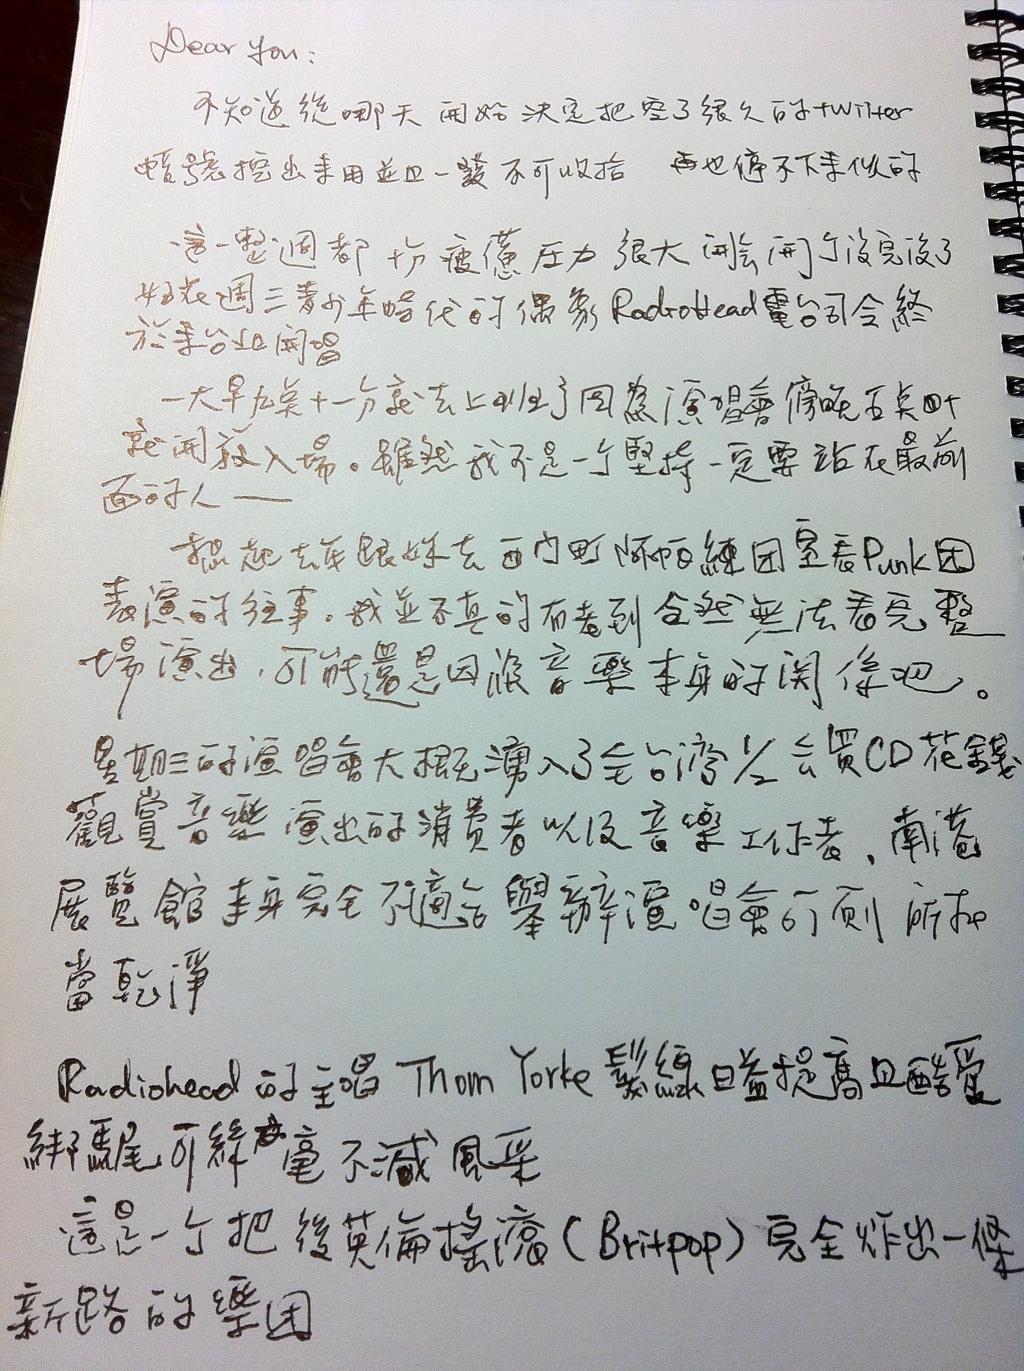 Dear You:
不知道從哪天開始決定把空了很久的twitter
帳號挖出來用並且一發不可收拾 再也停不下來似的
這一整週都十分疲憊压力很大開会開个沒完沒了
好在週三青少年時代的偶像RadioHead電台司令終
於來台北開唱
一大早九点十一分就去上班了因為演唱會傍晚五点四十
就開放入場。雖然我不是一个堅持一定要站在最前
面的人——
想起去年跟妹去西门町 練团室看Punk团
表演的往事。我並不真的有老到全然無法看完整
場演出,可能還是因為音樂本身的関係吧。
星期三的演唱會大概湧入了全台湾1/2会買CD花錢
觀賞音樂演出的消費者以及音樂工作者,南港
展覽館本身完全不適合舉辦演唱會 廁所相
當乾淨
Radiohead的主唱Thom Yorke髮線日益提高且酷愛
綁馬尾可絲毫不減風采
這是一个把後英倫搖滾(Britpop)完全炸出一條
新路的樂团